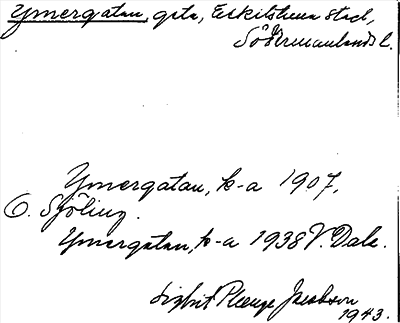 Ymergatan, gata, Eskilstuna stad,
Södermanlands l.
Ymergatan, k-a 1907,
O. Sjöling.
Ymergatan, k-a 1938 V Dale.
Sigbrit Plenge Jacobson
1943.